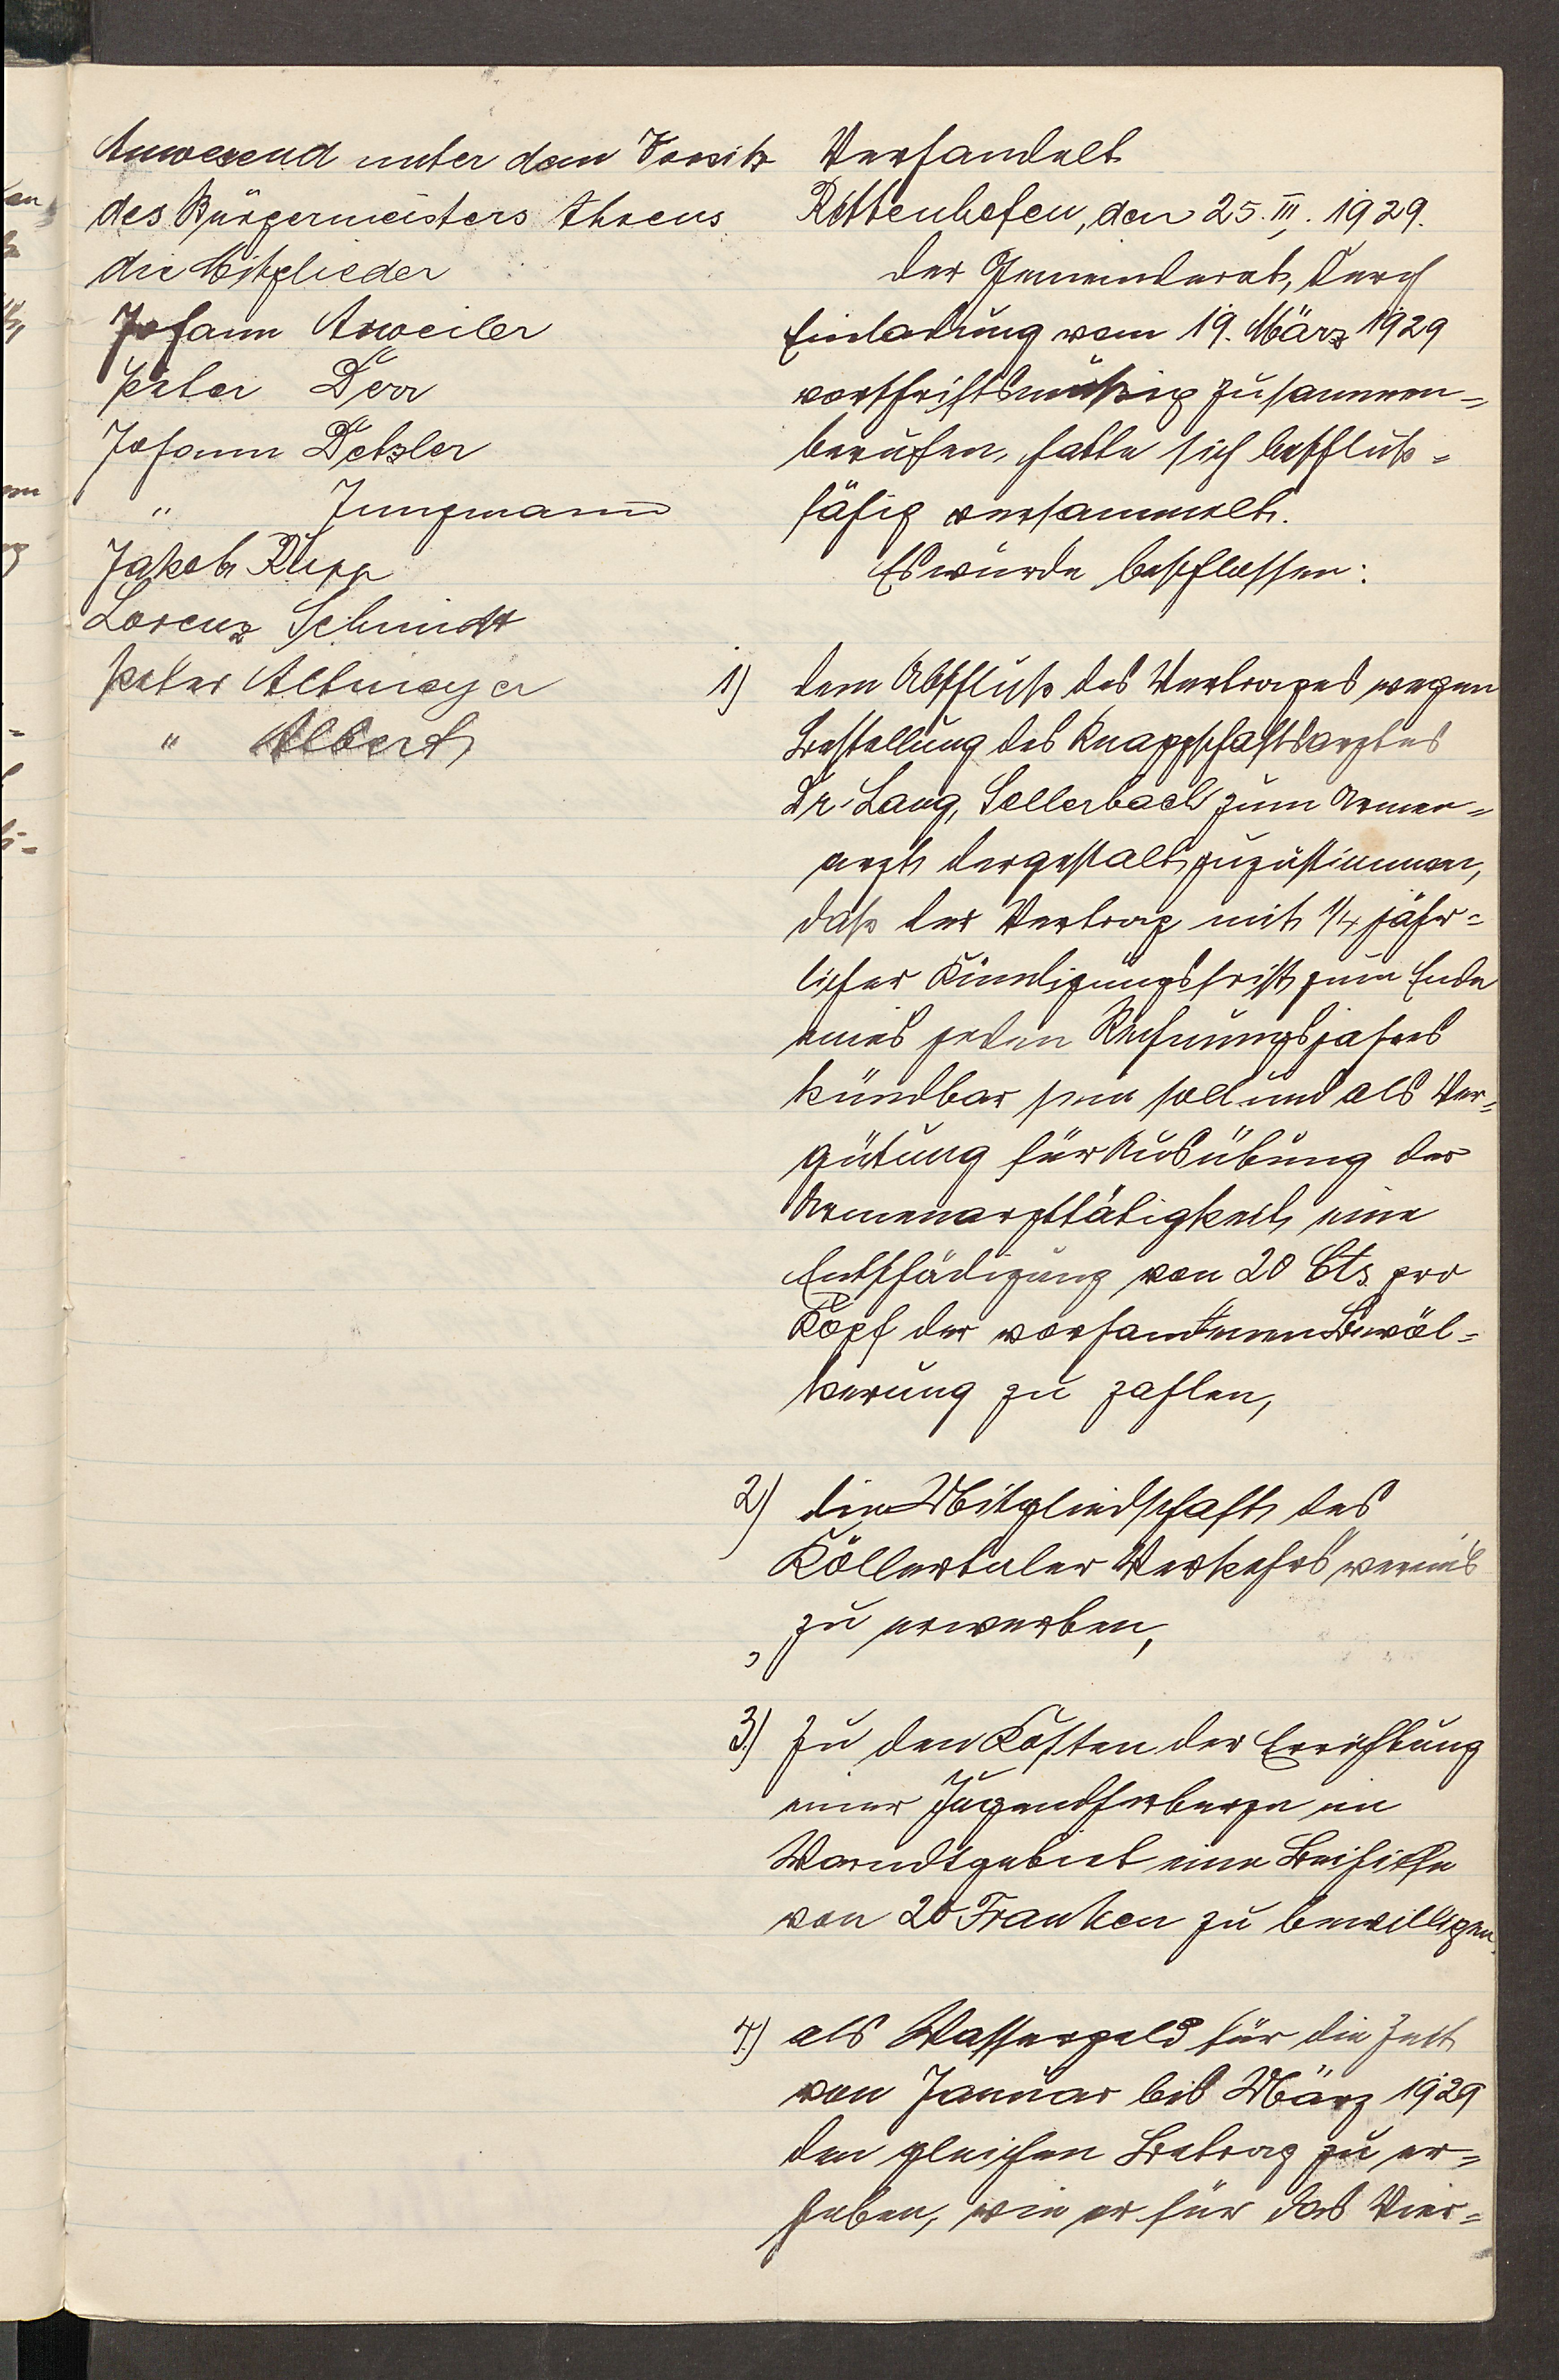 Anwesend unter dem Vorsitz
des Bürgermeisters Ahrens
die Mitglieder
Johann Arweiler
Peter Derr
Johann Detzler
" Jungmann
Jakob Rupp
Lorenz Schmidt
Peter Altmeyer
" Albert
Verhandelt
Rittenhofen, den 25. III. 1929.
Der Gemeinderat, durch
Einladung vom 19. März 1929
vorschriftsmäßig zusammen-
berufen, hatte sich beschluß-
fähig versammelt.
Es wurde beschlossen:
1) dem Abschluß des Vertrages wegen
Bestellung des Knappschaftsarztes
Dr. Lang, Sellerbach zum Armen-
arzt dergestalt zuzustimmen,
daß der Vertrag mit 1/4 jähr-
licher Kündigungsfrist zum Ende
eines jeden Rechnungsjahres
kündbar sein soll und als Ver-
gütung für Ausübung der
Armenarzttätigkeit eine
Entschädigung von 20 Cts. pro
Kopf der vorhandenen Bevöl-
kerung zu zahlen,
2) die Mitgliedschaft des
Köllertaler Verkehrsvereins
zu erwerben,
3.) zu den Kosten der Errichtung
einer Jugendherberge im
Warndtgebiet eine Beihilfe
von 20 Franken zu bewilligen.
4.) als Wassergeld für die Zeit
von Januar bis März 1929
den gleichen Betrag zu er-
heben, wie er für das Vier-